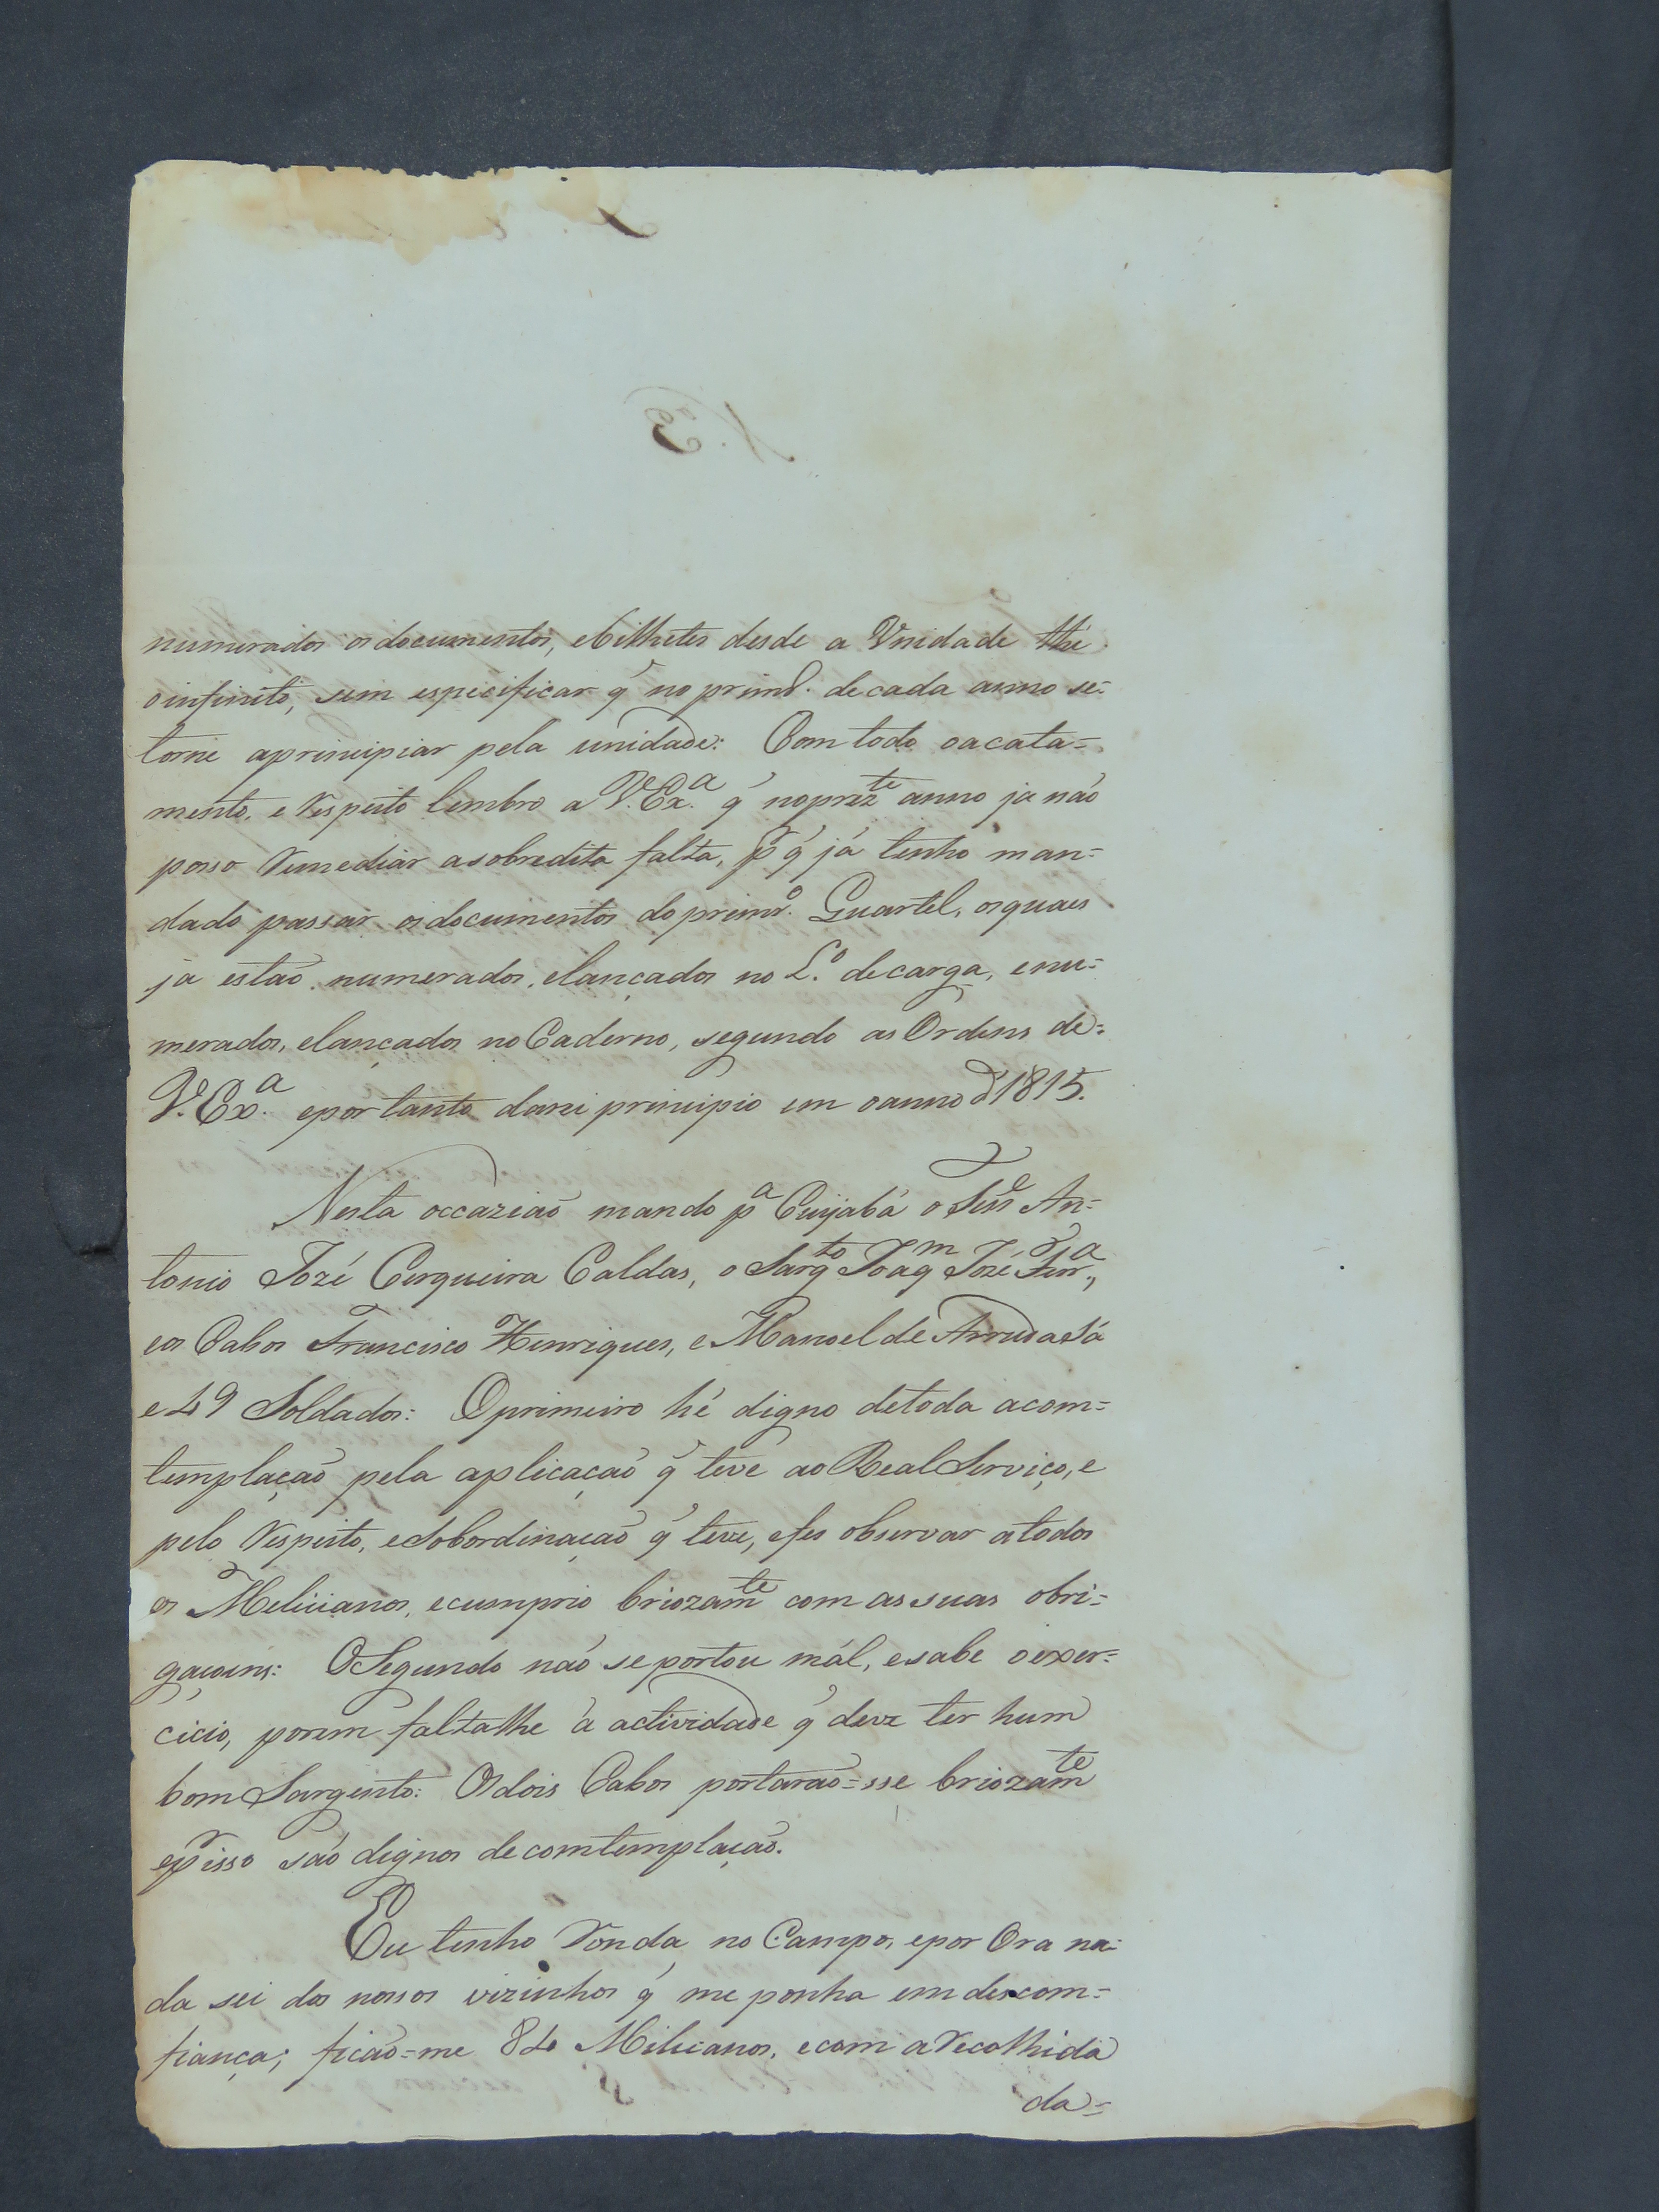 numerados os documentos, ebilhetes desde a Unidade thé
oinfinito, sem especificar q̃ no primrº. decada anno se=
torne aprincipiar pela unidade: Com todo oacata=
mento, e respeito lembro a V. Exª. q̃ noprezte anno ja naõ
posso remediar asobredita falta, p̃ q̃ já tenho man=
dado passar os documentos do primrº. Quartel, osquaes
ja estaõ numerados, elançados no Lº. decarga, enu=
merados, elançados no Caderno, segundo as Ordens de=
V. Exª. eportanto darei principio em oanno d'1815.
Nesta occaziaõ mando pª Cuijabá o Tene An=
tonio Jozé Cerqueira Caldas, o Sargto Joaqm Jozé Ferrª,
eos Cabos Francisco Henriques, e Manoel de Arruda Sá
e 49 Soldados: Oprimeiro hé digno detoda acom=
templaçaõ pela aplicaçaõ q̃ teve ao Real Serviço, e
pelo respeito, eSobordinaçaõ q̃ teve, efes observar atodos
os Melicianos, ecumprio briozamte com as suas obri=
gaçoens: OSegundo naõ se portou mál, esabe oexer=
cicio, porem faltalhe á actividade q̃ deve ter hum
bom Sargento: Os dois Cabos portaraõ=sse briozamte
ep̃ isso saõ dignos decomtemplaçaõ.
Eu tenho ronda no Campo, epor Ora na=
da sei dos nossos vizinhos q̃ me ponha em descom=
fiança; ficaõ=me 84 Milicianos, ecom arecolhida
da=